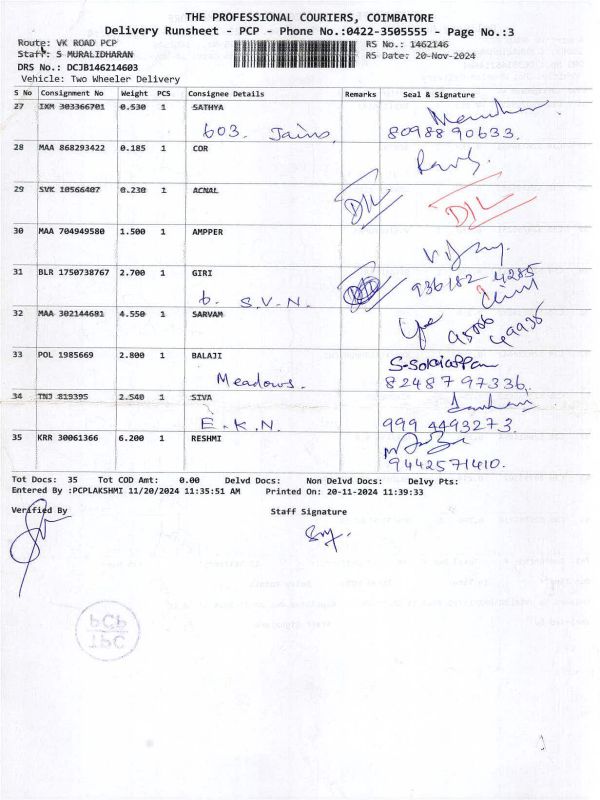 THE PROFESSIONAL COURIERS, COIMBATORE
Delivery Runsheet - PCP - Phone No.:0422-3505555 - Page No.:3
Route: VK ROAD PCP RS No.: 1462146
Staff: S MURALIDHARAN RS Date: 20-Nov-2024
DRS No.: DCJB146214603
Vehicle: Two Wheeler Delivery
S No Consignment No Weight PCS Consignee Details Remarks Seal & Signature
27 IXM 303366701 0.530 1 SATHYA
603. Jains. 8098890633.
28 MAA 868293422 0.185 1 COR
29 SVK 10566407 0.230 1 ACNAL
D/L D/L
30 MAA 704949580 1.500 1 AMPPER
31 BLR 1750738767 2.700 1 GIRI
6. S.V.N. 936182 4285
32 MAA 302144681 4.550 1 SARVAM
33 POL 1985669 2.800 1 BALAJI
Meadows. 8248797336.
34 TNJ 819395 2.540 1 SIVA
E.K.N. 9994493273.
35 KRR 30061366 6.200 1 RESHMI
9442571410.
Tot Docs: 35 Tot COD Amt: 0.00 Delvd Docs: Non Delvd Docs: Delvy Pts:
Entered By :PCPLAKSHMI 11/20/2024 11:35:51 AM Printed On: 20-11-2024 11:39:33
Verified By Staff Signature
PCP
TPC